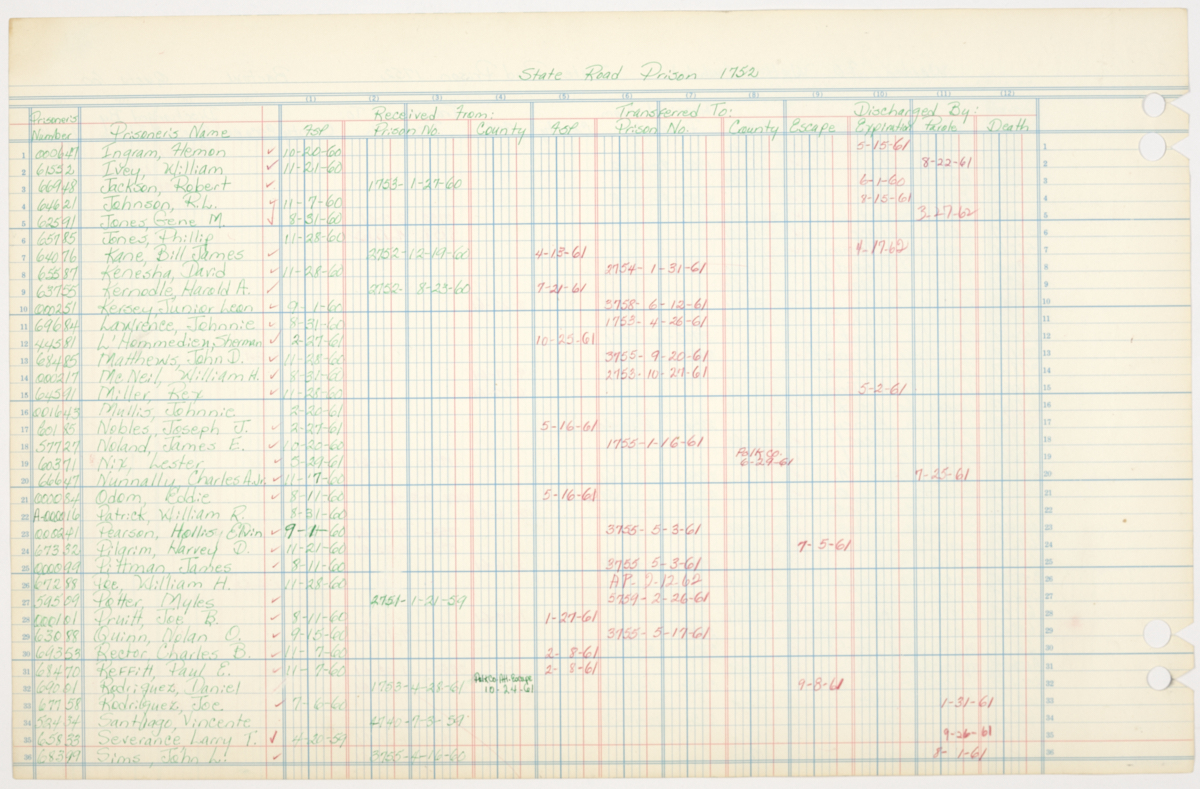 State Road Prison 1752
(1) (2) (3) (4) (5) (6) (7) (8) (9) (10) (11) (12)
Prisoner's Received From: Transferred To: Discharged By:
Number Prisoner's Name ASP Prison No. County ASP Prison No. County Escape Expiration Parole Death
1 000647 Ingram, Hemon ✓ 10-20-60 5-15-61 1
2 61532 Ivey, William ✓ 11-21-60 8-22-61 2
3 66948 Jackson, Robert ✓ 1753- 1-27-60 6-1-60 3
4 64621 Johnson, R.L. ✓ 11-7-60 8-15-61 4
5 62591 Jones, Gene M. ✓ 8-31-60 3-27-62 5
6 65785 Jones, Phillip 11-28-60 6
7 64076 Kane, Bill James ✓ 2752-12-19-60 4-13-61 4-17-62 7
8 65587 Kenesha, David ✓ 11-28-60 3754- 1-31-61 8
9 63755 Kernodle, Harold A. ✓ 2752- 8-23-60 7-21-61 9
10 000251 Kersey, Junior Leon ✓ 9-1-60 3758- 6-12-61 10
11 69684 Lawrence, Johnnie ✓ 8-31-60 1753- 4-26-61 11
12 44581 L'Hommedieu, Sherman ✓ 2-27-61 10-25-61 12
13 68485 Matthews, John D. ✓ 11-28-60 3755- 9-20-61 13
14 000217 McNeil, William H. ✓ 8-31-60 2753-10-27-61 14
15 64591 Miller, Rex ✓ 11-28-60 5-2-61 15
16 001643 Mullis, Johnnie 2-20-61 16
17 60185 Nobles, Joseph J. ✓ 2-27-61 5-16-61 17
18 57727 Noland, James E. ✓ 10-20-60 1755-1-16-61 18
19 60371 Nix, Lester ✓ 5-29-61 Polk Co. 6-29-61 19
20 66647 Nunnally, Charles A. Jr. ✓ 11-7-60 7-25-61 20
21 000084 Odom, Eddie ✓ 8-11-60 5-16-61 21
22 A-000016 Patrick, William R. 8-31-60 22
23 000241 Pearson, Hollis Elvin ✓ 9-1-60 3755- 5-3-61 23
24 67332 Pilgrim, Harvey D. ✓ 11-21-60 7-5-61 24
25 000099 Pittman, James ✓ 8-11-60 3755 5-3-61 25
26 67288 Poe, William H. 11-28-60 AP- 26
27 59509 Potter, Myles ✓ 2751-1-21-59 5759-2-26-61 27
28 000101 Pruitt, Joe B. ✓ 8-11-60 1-27-61 28
29 63088 Quinn, Nolan O. ✓ 9-15-60 3755- 5-17-61 29
30 69353 Rector Charles B. ✓ 11-7-60 2-8-61 30
31 68470 Reffitt, Paul E. ✓ 11-7-60 2-8-61 31
32 69001 Rodriguez, Daniel 1753-4-28-61 Polk Co. Escape 10-24-61 9-8-61 32
33 67758 Rodriguez, Joe. ✓ 7-6-60 1-31-61 33
34 52434 Santiago, Vincente 4740-7-3-59 34
35 65833 Severance Larry T. ✓ 4-20-59 9-26-61 35
36 68349 Sims, John L. ✓ 3755-4-16-60 8-1-61 36